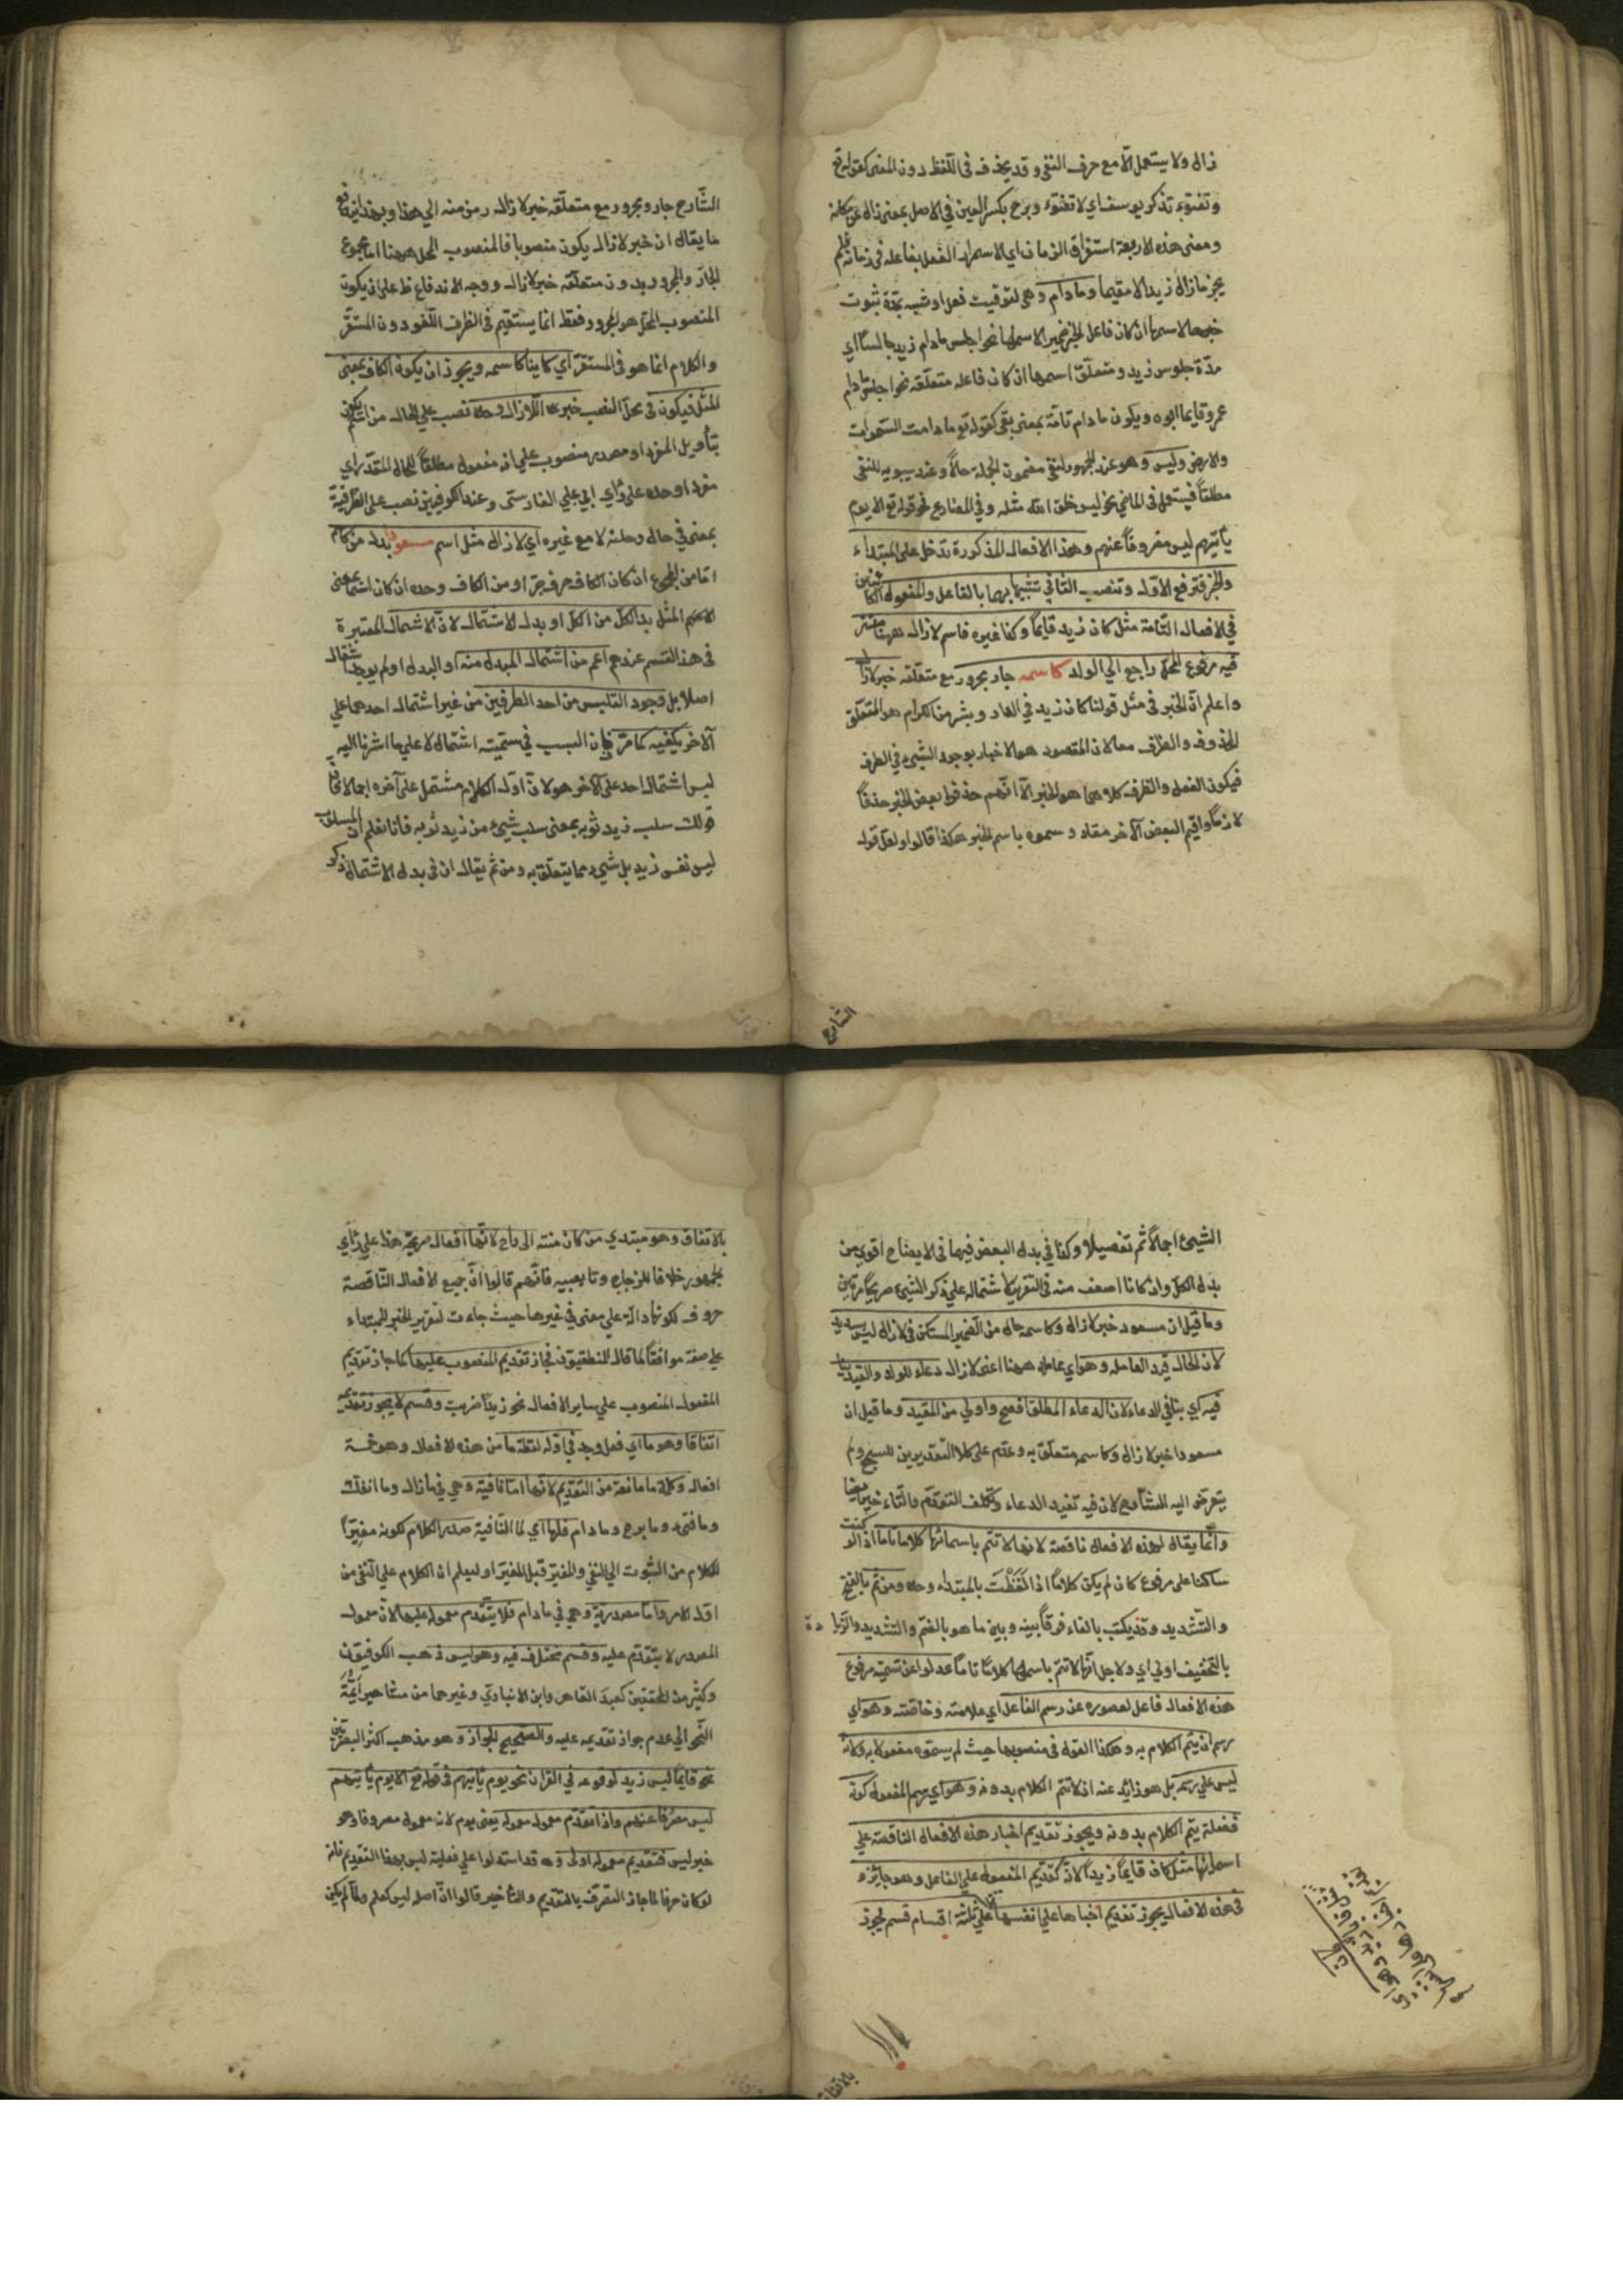 زال ولا يستعمل الّا مع حرف النفي وقد يحذف في اللّفظ دون المعنى كقوله تع
وتفتؤ تذكر يوسف اي لا تفتؤ وبرح بكسر العين في الاصل بمعنى زال عن مكانه
ومعنى هذه الاربعة استغراق الزمان اي لاستمرار الفعل بفاعله في زمانه فلم
يجز مازال زيد الا مقيما ومادام وهي لتوقيت فعل او شبهه بمدّة ثبوت
خبرها لاسمها ان كان فاعل الخبر ضمير الاسمها نحو اجلس مادام زيد جالسًا اي
مدّة جلوس زيد ومتعلّق اسمها ان كان فاعله متعلّقه نحو اجلس مادام
عمرو قايما ابوه ويكون مادام تامّة بمعنى بقي كقوله تع ما دامت السّموات
والارض وليس وهو عند الجمهور لنفي مضمون الجملة حالاً وعند سيبويه للنفي
مطلقًا فيستعمل في الماضي نحو ليس خلق الله مثله وفي المضارع نحو قوله تع الا يوم
يأتيهم ليس مصروفًا عنهم وهذا الافعال المذكورة تدخل على المبتداء
والخبر فترفع الاوّل وتنصب الثاني تشبيها بهما بالفاعل والمفعول الكائنين
في الافعال التّامة مثل كان زيد قايماً وكذا غيره فاسم لازال ههنا مستتر
فيه مرفوع المحلّ راجع الي الولد كاسمه جار مجرور مع متعلّقه خبر لازال
واعلم انّ الخبر في مثل قولنا كان زيد في الدار وبشر من الكرام هو المتعلّق
المحذوف والظرف معا لان المقصود هو الاخبار بوجود الشيء في الظرف
فيكون الفعل والظرف كلاهما هو الخبر الّا انّهم حذفوا بعض الخبر حذفًا
لازماً واقيم البعض الآخر مقامه وسموه باسم الخبر هكذا قالوا ولعل قول
الشّارح
الشّارح جار ومجرور مع متعلّقه خبر لازال رمز منه الي هذا وبهذا يندفع
ما يقال ان خبر لازال يكون منصوبا فالمنصوب المحل ههنا اما مجموع
الجارّ والمجرور بدون متعلّقه خبر لازال ووجه الاندفاع ظ على ان يكون
المنصوب المحلّ هو المجرور فقط انما يستقيم في الظرف اللّغو دون المستقرّ
والكلام انما هو في المستقرّ اي كاينا كاسمه ويجوز ان يكون الكاف بمعنى
المثل فيكون في محلّ النصب خبر لازال وحده نصب علي الحال من
بتأويل المفرد او مصدر منصوب علي انه مفعول مطلقًا للحال المقدّر اي
مفردا وحده على رأي ابي علي الفارسي وعند الكوفيين نصب على الظرفية
بمعنى في حال وحدته لا مع غيره اي لازال مثل اسم مسعود بدل من كاسمه
امّا من المجموع ان كان الكاف حرف جرّ او من الكاف وحده ان كان اسماً بمعنى
المثل بدل الكل من الكل او بدل الاشتمال لانّ الاشتمال المعتبرة
في هذا القسم عندهم اعم من اشتمال المبدل منه او البدل او لم يوجد اشتمال
اصلا بل وجود التلبس من احد الطرفين من غير اشتمال احدهما علي
الآخر يكفيه كما مرّ فان السبب في تسميته اشتمال لا علي ما اشرنا اليه
ليس اشتمال احد على الآخر هو لانّ اوّل الكلام مشتمل على آخره اجمالا فان
قولك سلب زيد ثوبه بمعنى سلب شيء من زيد ثوبه فانا نعلم ان المسلوب
ليس نفس زيد بل شيء مما يتعلّق به ومن ثم يقال ان في بدل الاشتمال ذكر
الشيئ اجمالاً ثم تفصيلا وكذا في بدل البعض فيهما في الايضاح اقوي من
بدل الكل وان كانا اضعف منه في التقرير لاشتماله علي ذكر الشيئ صريحًا مرتين
وما قيل ان مسعود خبر لازال وكاسمه حال من الضمير المستكن في لازال ليس بسديد
لان الحال قيد العامل وهو اي عامله ههنا اعنى لازال دعاء للولد والقيد
فيه اي ينافي الدعاء لان الدعاء المطلق افصح واولي من المقيد وما قيل ان
مسعودا خبر لازال وكاسمه متعلّق به وقدّم علي كلا التقديرين للسجع ولم
يتعرّض اليه الشارح لان فيه تقيد الدعاء وتكلف التقدّم والتاء خير ايضا
وانّما يقال لهذه الافعال ناقصة لانها لا تتم باسمائها كلاما تاما اذ لو كنت
ساكتا على مرفوع كان لم يكن كلاماً اذا لَفَظْتَ بالمبتداء وحده ومن ثم بالفتح
والتّشديد وقد يكتب بالهاء فرقًا بينه وبين ما هو بالضّم والتشديد والزيادة
بالتخفيف اولي اي ولاجل انّها لا تتم باسمها كلامًا تامًا عدلوا عن تسمية مرفوع
هذه الافعال فاعلا لقصوره عن رسم الفاعل اي علامته وخاصّته وهو اي
رسم ان يتم الكلام به وهكذا القول في منصوبها حيث لم يسمّوه مفعولا به لانه
ليس علي رسمه بل هو زايد عنه اذ لا تتم الكلام بدونه وهو اي رسم المفعول كونه
فضلة يتم الكلام بدونه ويجوز تقديم اخبار هذه الافعال الناقصة علي
اسمائها مثل كان قايماً زيد لانّه كتقديم المفعول علي الفاعل وهو جايز و
في هذه الافعال يجوز تقديم اخبارها علي انفسها علي ثلثة اقسام قسم يجوز
بالاتفاق
بالاتفاق وهو مبتدي من كان منته الى راح لانّها افعال صريحة هذا علي رأي
الجمهور خلافا للزجاج وتابعيه فانّهم قالوا انّ جميع الافعال النّاقصة
حروف لكونها دالة علي معنى في غيرها حيث جاءت لتقرير الخبر للمبتداء
علي صفة موافقًا لما قال المنطقيّون فجاز تقديم المنصوب عليها كما جاز تقديم
المفعول المنصوب علي ساير الافعال نحو زيداً ضربت وقسم لا يجوز تقديمه
اتفاقا وهو ما اي فعل وجد في اوّله لفظة ما من هذه الافعال وهو خمسة
افعال وكلمة ما مانعة من التقديم لانّها امّا نافية وهي في مازال وما انفك
وما فتيء وما برح وما دام فلها اي لما النّافية صدر الكلام لكونه مغيّراً
للكلام من الثبوت الي النفي والمغيّر قبل المغيّر او ليعلم ان الكلام علي النّفي من
اوّل الامر وامّا مصدرية وهي في مادام فلا يتقدم معموله عليها لانّ معمول
المصدر لا يتقدّم عليه وقسم مختلف فيه وهو ليس ذهب الكوفيّون
وكثير من المحققين كعبد القاهر وابن الانباريّ وغيرهما من مشاهير ائمّة
النّحو الي عدم جواز تقديمه عليه والصّحيح الجواز وهو مذهب اكثر البصريّين
نحو قايمًا ليس زيد لوقوعه في القرآن نحو يوم يأتيهم في قوله تع الا يوم يأتيهم
ليس مصرفًا عنهم واذا تقدّم معمول معموله يعنى يوم لانه معمول مصروفا وهو
خبر ليس فتقديم معموله اولى وقد استدلوا علي فعلية ليس بهذا التقديم فانه
لو كان حرفا لما جاز التصرّف بالتقديم والتأخير قالوا انّ اصله ليس كعلم ولمّا لم يكن